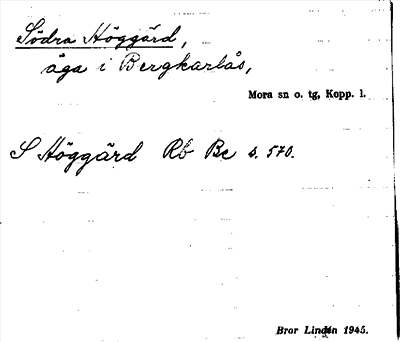 Södra Höggärd,
äga i Bergkarlås,
Mora sn o. tg, Kopp. l.
S Höggärd Rb Bc s. 570.
Bror Lindén 1945.